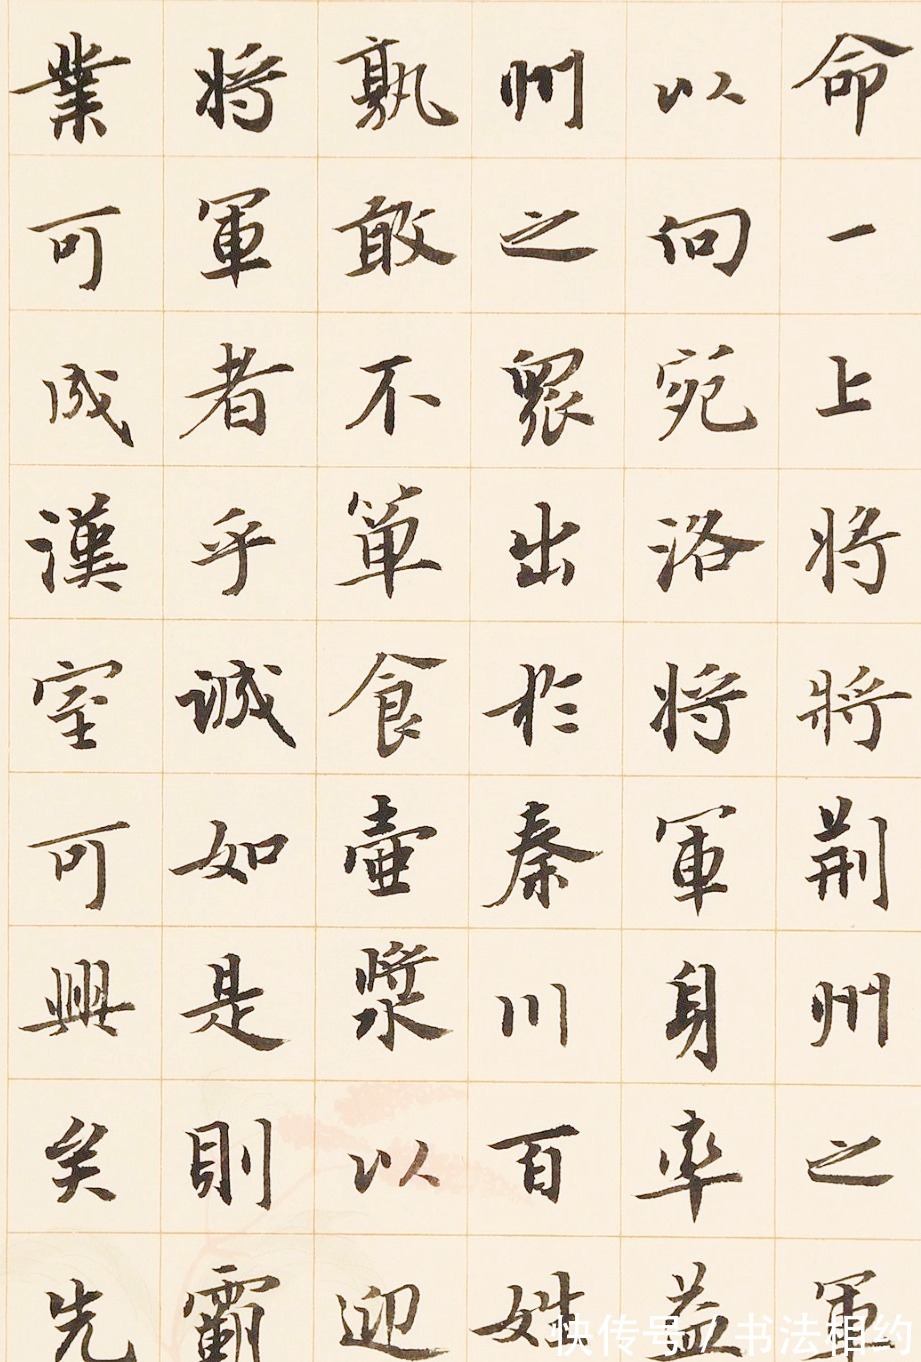 命一上將將荊州之軍
以向宛洛將軍身率益
州之眾出於秦川百姓
孰敢不簞食壺漿以迎
將軍者乎誠如是則霸
業可成漢室可興矣先
快传号/书法相约